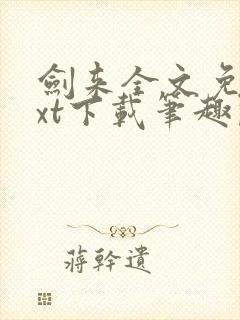 劍来全文免
xt下載筆趣
蔣幹遺